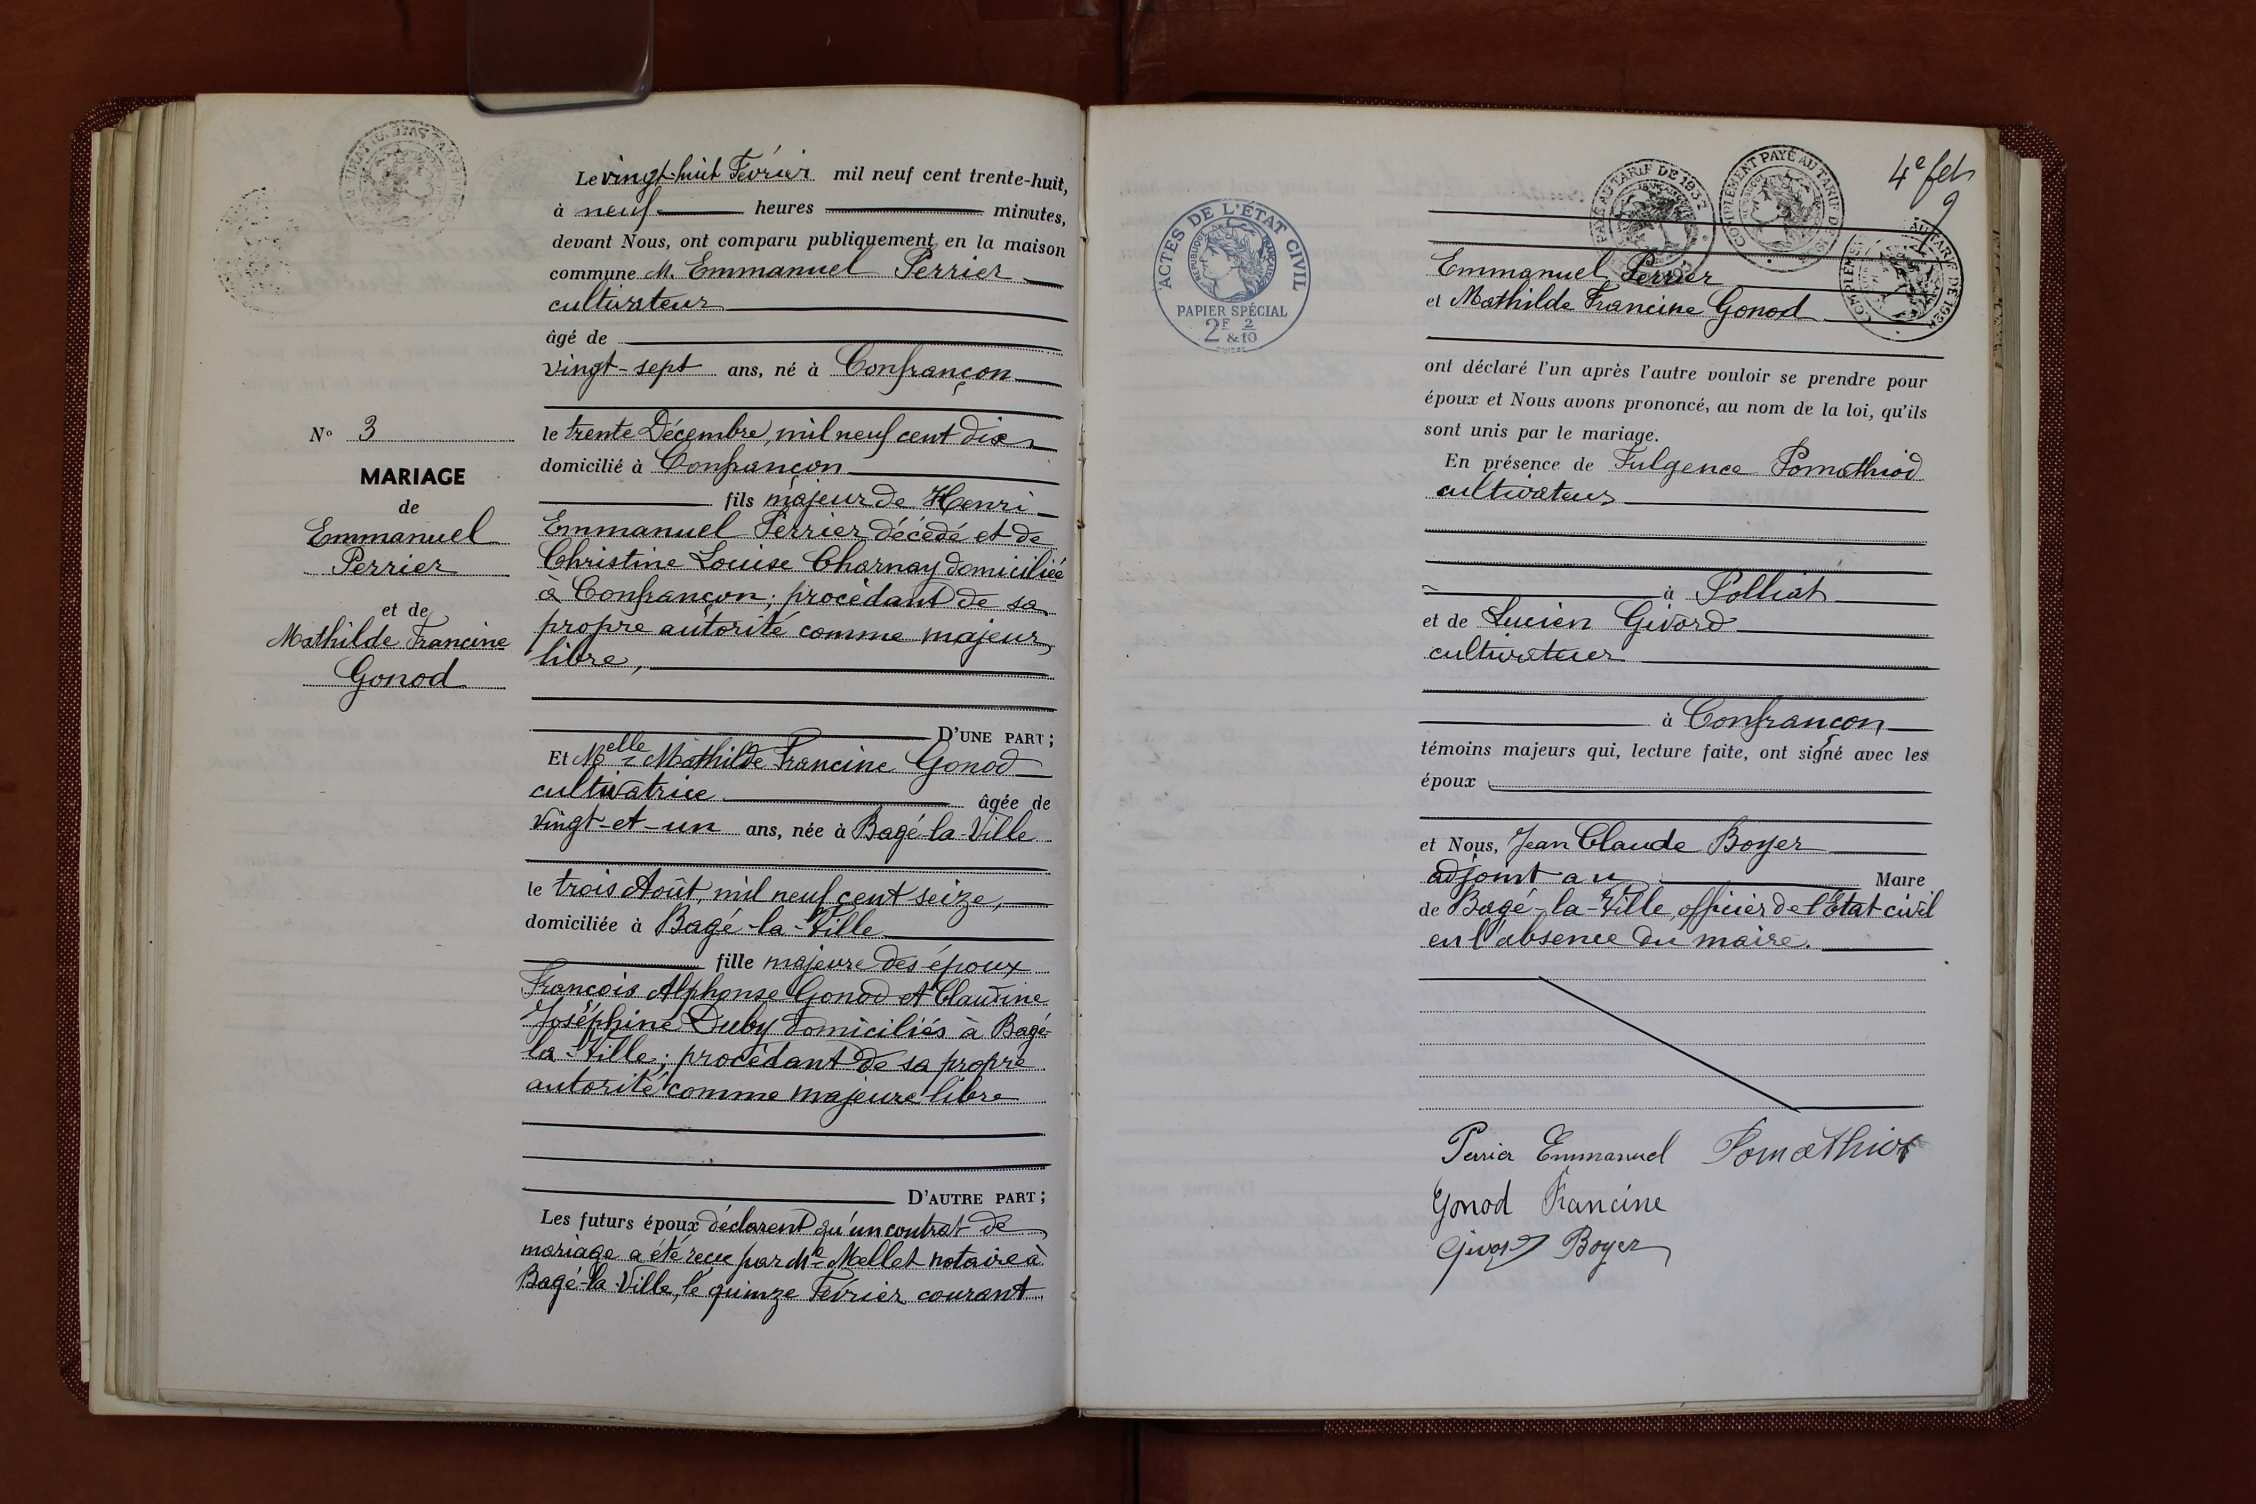 Le vingt-huit Février mil neuf cent trente-huit,
à neuf heures minutes,
devant Nous, ont comparu publiquement en la maison
commune M. Emmanuel Perrier
cultivateur
âgé de
vingt-sept ans, né à Confrançon
le trente Décembre, mil neuf cent dix
domicilié à Confrançon
fils majeur de Henri
Emmanuel Perrier décédé et de
Christine Louise Charnay domiciliée
à Confrançon; procèdant de sa
propre autorité comme majeur
libre,
D'UNE PART;
N° 3
MARIAGE
de
Emmanuel
Perrier
et de
Mathilde Francine
Gonod
Et Melle Mathilde Francine Gonod
cultivatrice âgée de
vingt-et-un ans, née à Bagé-la-Ville
le trois Août, mil neuf cent seize,
domiciliée à Bagé-la-Ville
fille majeure des époux
François Alphonse Gonod et Claudine
Joséphine Duby domiciliés à Bagé-
la-Ville; procèdant de sa propre
autorité comme majeure libre
D'AUTRE PART;
Les futurs époux déclarent qu'un contrat de
mariage a été reçu par Me Mallet notaire à
Bagé-la-Ville, le quinze Février courant
ACTES DE L'ÉTAT CIVIL
RÉPUBLIQUE FRANÇAISE
PAPIER SPÉCIAL
2F & 2/10
PAYÉ AU TARIF DE 1937
COMPLÉMENT PAYÉ AU TARIF DE
4e fet
9
Emmanuel Perrier
et Mathilde Francine Gonod
ont déclaré l'un après l'autre vouloir se prendre pour
époux et Nous avons prononcé, au nom de la loi, qu'ils
sont unis par le mariage.
En présence de Fulgence Pomathiod
cultivateur
à Polliat
et de Lucien Givord
cultivateur
à Confrançon
témoins majeurs qui, lecture faite, ont signé avec les
époux
et Nous, Jean Claude Boyer
adjoint au Maire
de Bagé-la-Ville, officier de l'Etat civil
en l'absence du maire.
Perrier Emmanuel Pomathiod
Gonod Francine
Givord Boyer